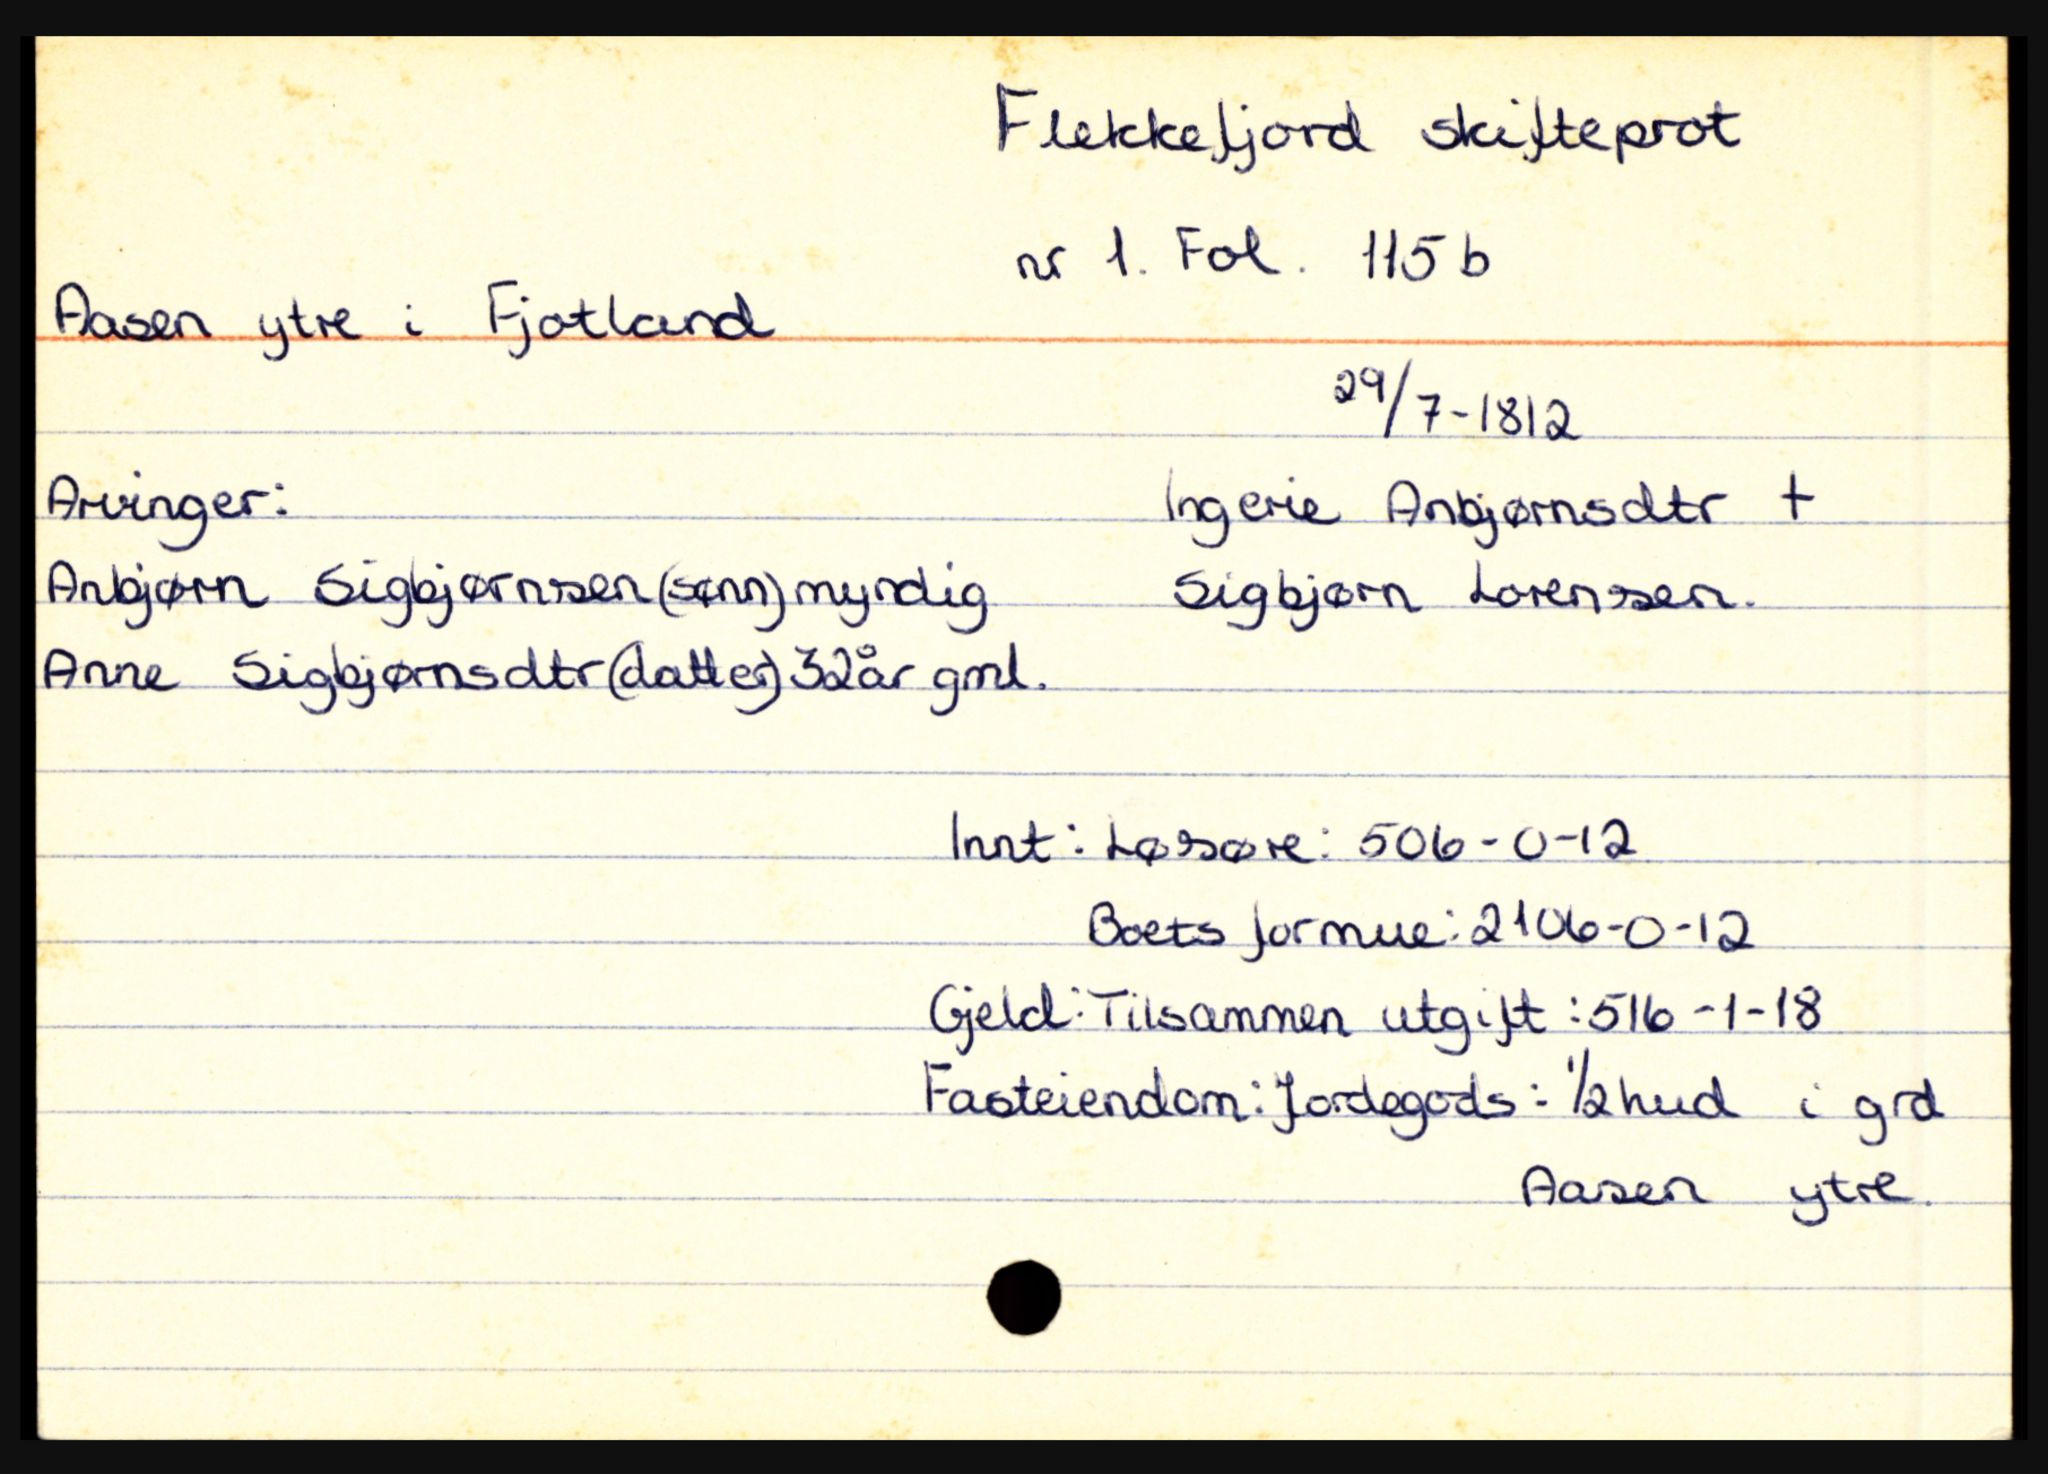 Flekkefjord skifteprot
nr 1. Fol. 115 b
Aasen ytre i Fjotland
29/7-1812
Arvinger:
Ingerie Anbjørnsdtr +
Anbjørn Sigbjørnssen (sønn) myndig
Sigbjørn Lorenssen.
Anne Sigbjørnsdtr (datter) 32 år gml.
Innt: Løsøre: 506-0-12
Boets formue: 2106-0-12
Gjeld: Tilsammen utgift: 516-1-18
Fasteiendom: Jordegods: 1/2 hud i grd
Aasen ytre.